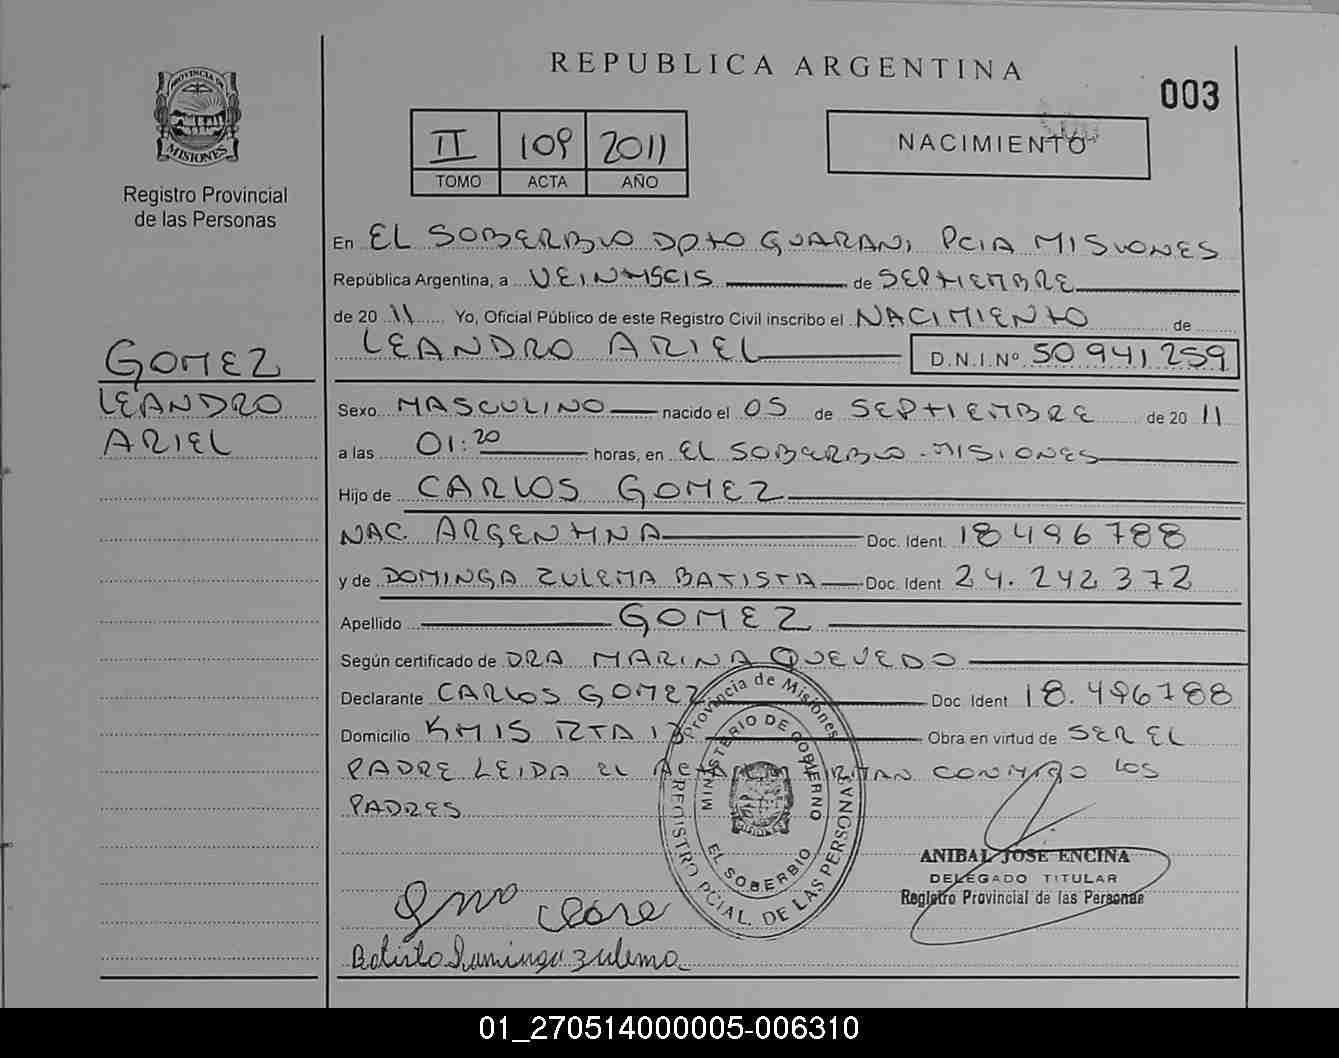 REPUBLICA ARGENTINA
003
PROVINCIA DE
MISIONES
Registro Provincial
de las Personas
II 109 2011
TOMO ACTA AÑO
NACIMIENTO
En EL SOBERBIO DPTO GUARANI PCIA MISIONES
República Argentina, a VEINTISEIS de SEPTIEMBRE
de 20 11 Yo, Oficial Público de este Registro Civil inscribo el NACIMIENTO de
LEANDRO ARIEL D.N.I.Nº 50.941.259
GOMEZ
LEANDRO
ARIEL
Sexo MASCULINO nacido el 05 de SEPTIEMBRE de 20 11
a las 01:20 horas, en EL SOBERBIO - MISIONES
Hijo de CARLOS GOMEZ
NAC. ARGENTINA Doc. Ident. 18496788
y de DOMINGA ZULEMA BATISTA Doc. Ident 24.242372
Apellido GOMEZ
Según certificado de DRA MARINA QUEVEDO
Declarante CARLOS GOMEZ Doc Ident 18.496788
Domicilio KM15 RTA 13 Obra en virtud de SER EL
PADRE LEIDA EL ACTA FIRMAN CONMIGO LOS
PADRES
Provincia de Misiones
MINISTERIO DE GOBIERNO
EL SOBERBIO
REGISTRO PCIAL. DE LAS PERSONAS
ANIBAL JOSE ENCINA
DELEGADO TITULAR
Registro Provincial de las Personas
Batista Dominga Zulema
01_270514000005-006310